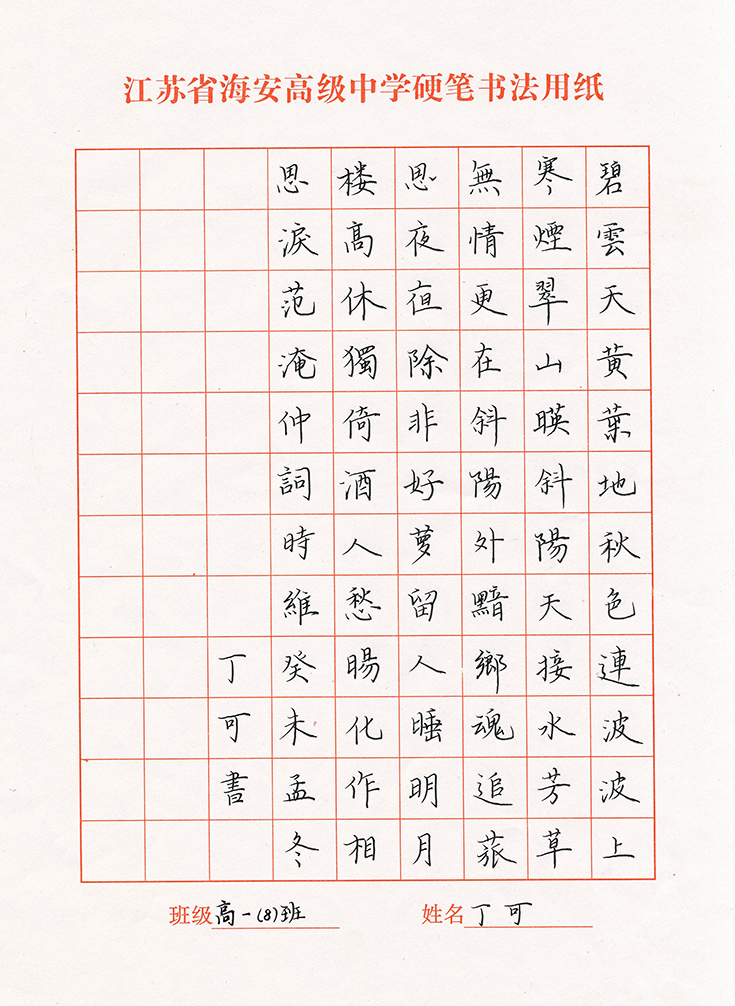 江苏省海安高级中学硬笔书法用纸
碧雲天黃葉地秋色連波波上
寒煙翠山暎斜陽天接水芳草
無情更在斜陽外黯鄉魂追旅
思夜亱除非好夢留人睡明月
楼高休獨倚酒人愁腸化作相
思淚范淹仲詞時維癸未孟冬
丁可書
班级高一(8)班 姓名丁可